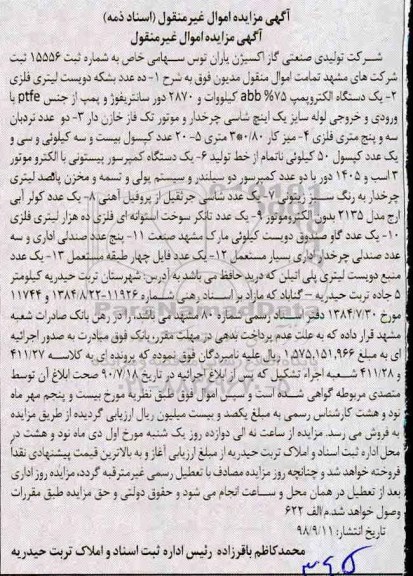 آگهی مزایده اموال غیرمنقول (اسناد ذمه)
آگهی مزایده اموال غیرمنقول
شرکت تولیدی صنعتی گاز اکسیژن یاران توس سهامی خاص به شماره ثبت ۱۵۵۵۶ ثبت
شرکت های مشهد تمامت اموال منقول مدیون فوق به شرح ۱- ده عدد بشکه دویست لیتری فلزی
۲- یک دستگاه الکتروپمپ ۷۵% abb کیلووات و ۲۸۷۰ دور سانتریفوژ و پمپ از جنس ptfe با
ورودی و خروجی لوله سایز یک اینچ شاسی چرخدار و موتور تک فاز خازن دار ۳- دو عدد نردبان
سه و پنج متری فلزی ۴- میز کار ۰/۸۰*۳ متری ۵- ۲۰ عدد کپسول بیست و سه کیلوئی و سی و
یک عدد کپسول ۵۰ کیلوئی ناتمام از خط تولید ۶- یک دستگاه کمپرسور پیستونی با الکترو موتور
۳ اسب و ۱۴۰۵ دور با دو عدد کمپرسور دو سیلندر و سیستم پولی و تسمه و مخزن پانصد لیتری
چرخدار به رنگ سبز زیتونی ۷- یک عدد شاسی جرثقیل از پروفیل آهنی ۸- یک عدد کولر آبی
ارج مدل ۲۱۳۵ بدون الکتروموتور ۹- یک عدد تانکر سوخت استوانه ای فلزی ده هزار لیتری فلزی
۱۰- یک عدد گاو صندوق دویست کیلوئی مارک مشهد صنعت ۱۱- پنج عدد صندلی اداری و سه
عدد صندلی چرخدار اداری بسیار مستعمل ۱۲- یک عدد فایل چهار طبقه مستعمل ۱۳- یک عدد
منبع دویست لیتری پلی اتیلن که درید حافظ می باشد به آدرس: شهرستان تربت حیدریه کیلومتر
۵ جاده تربت حیدریه – گناباد که مازاد بر اسناد رهنی شماره ۱۱۹۲۶-۱۳۸۴/۸/۲۲ و ۱۱۷۴۴
مورخ ۱۳۸۴/۷/۳۰ دفتر اسناد رسمی شماره ۸۰ مشهد می باشد، در رهن بانک صادرات شعبه
مشهد قرار داده که به علت عدم پرداخت بدهی در مهلت مقرر، بانک فوق مبادرت به صدور اجرائیه
ای به مبلغ ۱,۵۷۵,۱۵۱,۹۶۶ ریال علیه نامبردگان فوق نموده که پرونده ای به کلاسه ۴۱۱/۲۷
و ۴۱۱/۲۸ شعبه اجراء تشکیل که پس از ابلاغ اجرائیه در تاریخ ۹۰/۷/۱۸ صحت ابلاغ آن توسط
متصدی مربوطه گواهی شده است و سپس اموال فوق طبق نظریه مورخ بیست و پنجم مهر ماه
نود و هشت کارشناس رسمی به مبلغ یکصد و بیست میلیون ریال ارزیابی گردیده از طریق مزایده
به فروش می رسد. مزایده از ساعت نه الی دوازده روز یک شنبه مورخ اول دی ماه نود و هشت در
محل اداره ثبت اسناد و املاک تربت حیدریه از مبلغ ارزیابی آغاز و به بالاترین قیمت پیشنهادی نقدا
فروخته خواهد شد و چنانچه روز مزایده مصادف با تعطیل رسمی غیرمترقبه گردد، مزایده روز اداری
بعد از تعطیل در همان محل و ساعت انجام می شود و حقوق دولتی و حق مزایده طبق مقررات
وصول خواهد شد.م الف ۶۲۲
تاریخ انتشار: ۹۸/۹/۱۱
محمدکاظم باقرزاده رئیس اداره ثبت اسناد و املاک تربت حیدریه